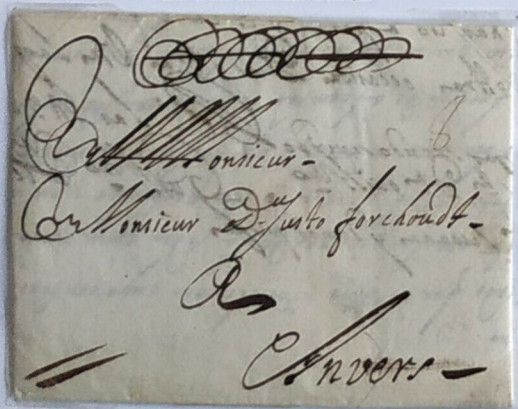 A Monsieur
Monsieur Dn Justo forchoudt
A
Anvers